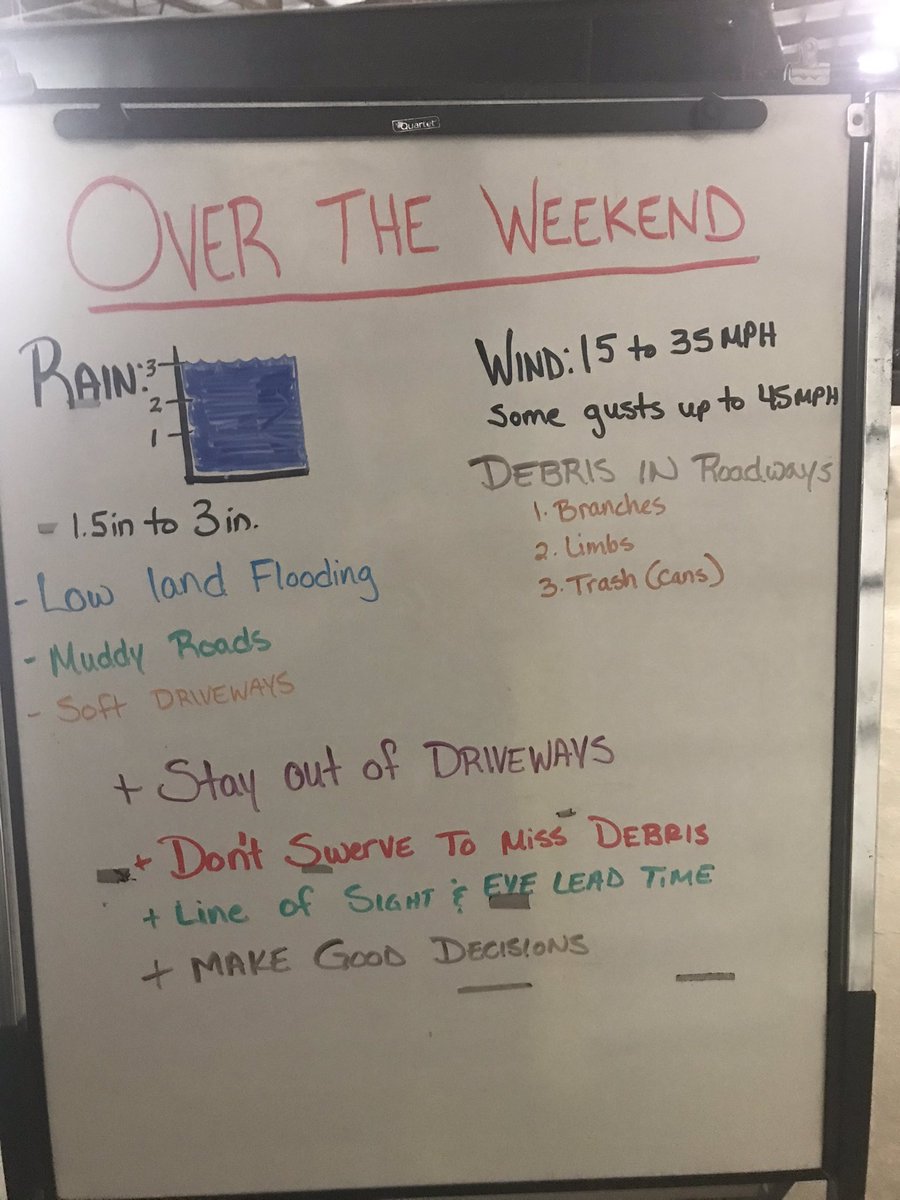 Quartet
OVER THE WEEKEND
RAIN:
3
2
1
- 1.5in to 3in.
- Low land Flooding
- Muddy Roads
- Soft DRIVEWAYS
WIND: 15 to 35 MPH
Some gusts up to 45MPH
DEBRIS IN Roadways
1. Branches
2. Limbs
3. Trash (cans)
+ Stay out of DRIVEWAYS
+ Don't Swerve To Miss DEBRIS
+ Line of SIGHT & EYE LEAD TIME
+ MAKE GOOD DECISIONS